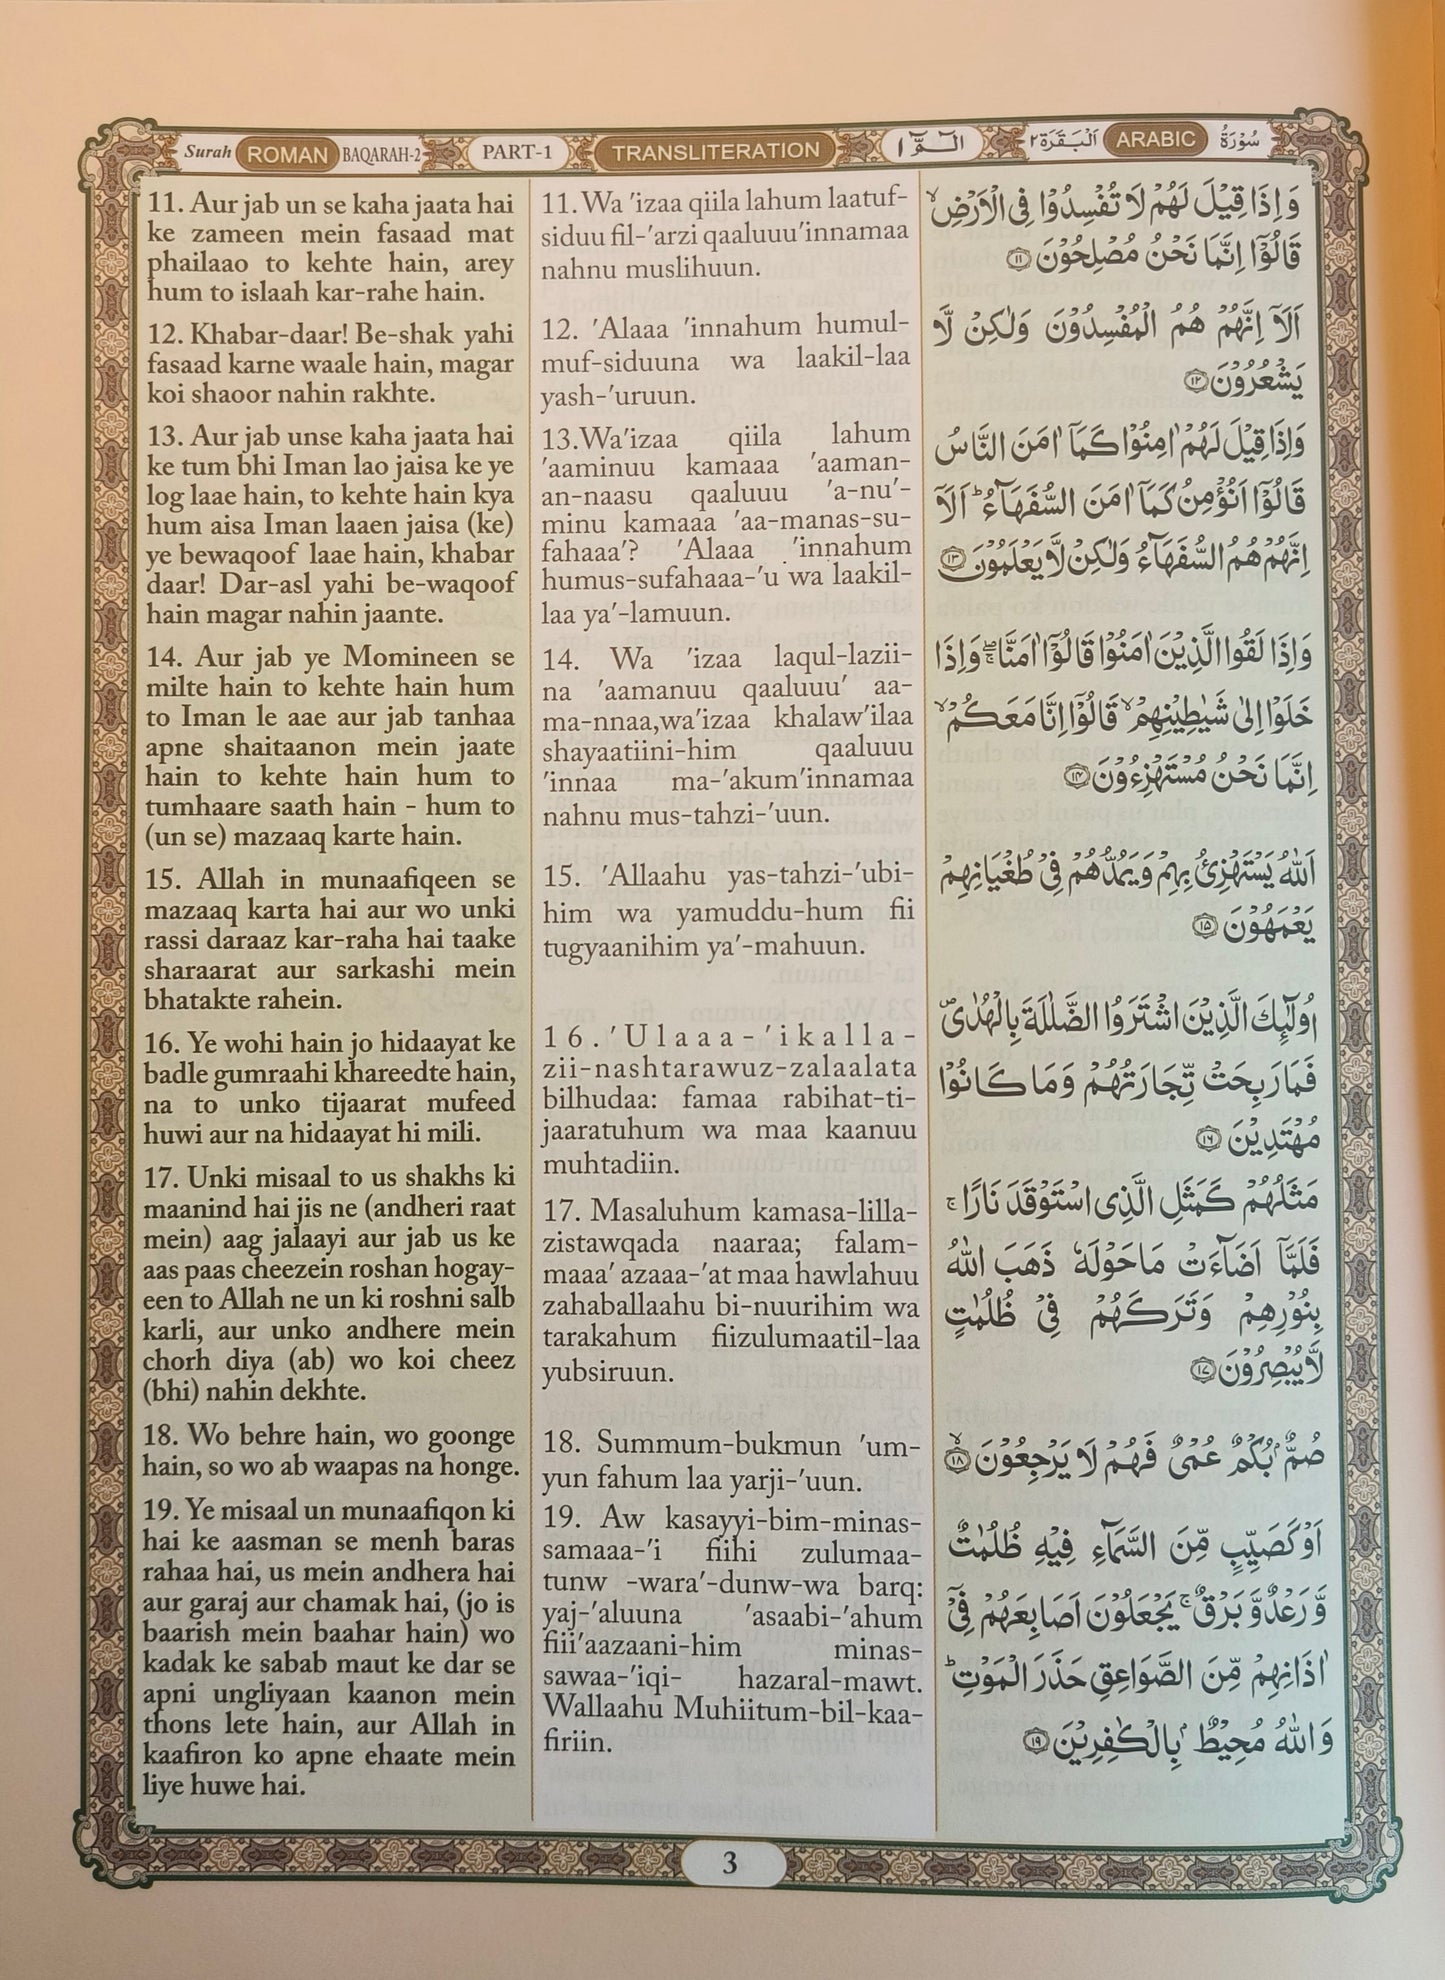 Surah ROMAN BAQARAH-2 PART-1 TRANSLITERATION الٓـمّٓ ١ اَلْبَقَرَة ٢ ARABIC سُوْرَةُ
11. Aur jab un se kaha jaata hai
ke zameen mein fasaad mat
phailaao to kehte hain, arey
hum to islaah kar-rahe hain.
12. Khabar-daar! Be-shak yahi
fasaad karne waale hain, magar
koi shaoor nahin rakhte.
13. Aur jab unse kaha jaata hai
ke tum bhi Iman lao jaisa ke ye
log laae hain, to kehte hain kya
hum aisa Iman laaen jaisa (ke)
ye bewaqoof laae hain, khabar
daar! Dar-asl yahi be-waqoof
hain magar nahin jaante.
14. Aur jab ye Momineen se
milte hain to kehte hain hum
to Iman le aae aur jab tanhaa
apne shaitaanon mein jaate
hain to kehte hain hum to
tumhaare saath hain - hum to
(un se) mazaaq karte hain.
15. Allah in munaafiqeen se
mazaaq karta hai aur wo unki
rassi daraaz kar-raha hai taake
sharaarat aur sarkashi mein
bhatakte rahein.
16. Ye wohi hain jo hidaayat ke
badle gumraahi khareedte hain,
na to unko tijaarat mufeed
huwi aur na hidaayat hi mili.
17. Unki misaal to us shakhs ki
maanind hai jis ne (andheri raat
mein) aag jalaayi aur jab us ke
aas paas cheezein roshan hogay-
een to Allah ne un ki roshni salb
karli, aur unko andhere mein
chorh diya (ab) wo koi cheez
(bhi) nahin dekhte.
18. Wo behre hain, wo goonge
hain, so wo ab waapas na honge.
19. Ye misaal un munaafiqon ki
hai ke aasman se menh baras
rahaa hai, us mein andhera hai
aur garaj aur chamak hai, (jo is
baarish mein baahar hain) wo
kadak ke sabab maut ke dar se
apni ungliyaan kaanon mein
thons lete hain, aur Allah in
kaafiron ko apne ehaate mein
liye huwe hai.
11. Wa 'izaa qiila lahum laatuf-
siduu fil-'arzi qaaluuu'innamaa
nahnu muslihuun.
12. 'Alaaa 'innahum humul-
muf-siduuna wa laakil-laa
yash-'uruun.
13.Wa'izaa qiila lahum
'aaminuu kamaaa 'aaman-
an-naasu qaaluuu 'a-nu'-
minu kamaaa 'aa-manas-su-
fahaaa'? 'Alaaa 'innahum
humus-sufahaaa-'u wa laakil-
laa ya'-lamuun.
14. Wa 'izaa laqul-lazii-
na 'aamanuu qaaluuu' aa-
ma-nnaa,wa'izaa khalaw'ilaa
shayaatiini-him qaaluuu
'innaa ma-'akum'innamaa
nahnu mus-tahzi-'uun.
15. 'Allaahu yas-tahzi-'ubi-
him wa yamuddu-hum fii
tugyaanihim ya'-mahuun.
16. 'Ulaaa-'ikalla-
zii-nashtarawuz-zalaalata
bilhudaa: famaa rabihat-ti-
jaaratuhum wa maa kaanuu
muhtadiin.
17. Masaluhum kamasa-lilla-
zistawqada naaraa; falam-
maaa' azaaa-'at maa hawlahuu
zahaballaahu bi-nuurihim wa
tarakahum fiizulumaatil-laa
yubsiruun.
18. Summum-bukmun 'um-
yun fahum laa yarji-'uun.
19. Aw kasayyi-bim-minas-
samaaa-'i fiihi zulumaa-
tunw -wara'-dunw-wa barq:
yaj-'aluuna 'asaabi-'ahum
fiii'aazaani-him minas-
sawaa-'iqi- hazaral-mawt.
Wallaahu Muhiitum-bil-kaa-
firiin.
وَ اِذَا قِيْلَ لَهُمْ لَا تُفْسِدُوْا فِى الْاَرْضِ ۙ
قَالُوْٓا اِنَّمَا نَحْنُ مُصْلِحُوْنَ ۝۱۱
اَلَآ اِنَّهُمْ هُمُ الْمُفْسِدُوْنَ وَلٰكِنْ لَّا
يَشْعُرُوْنَ ۝۱۲
وَاِذَا قِيْلَ لَهُمْ اٰمِنُوْا كَمَآ اٰمَنَ النَّاسُ
قَالُوْٓا اَنُؤْمِنُ كَمَآ اٰمَنَ السُّفَهَآءُ ؕ اَلَآ
اِنَّهُمْ هُمُ السُّفَهَآءُ وَلٰكِنْ لَّا يَعْلَمُوْنَ ۝۱۳
وَاِذَا لَقُوا الَّذِيْنَ اٰمَنُوْا قَالُوْٓا اٰمَنَّا ۖۚ وَاِذَا
خَلَوْا اِلٰى شَيٰطِيْنِهِمْ ۙ قَالُوْٓا اِنَّا مَعَكُمْ ۙ
اِنَّمَا نَحْنُ مُسْتَهْزِءُوْنَ ۝۱۴
اَللّٰهُ يَسْتَهْزِئُ بِهِمْ وَيَمُدُّهُمْ فِىْ طُغْيَانِهِمْ
يَعْمَهُوْنَ ۝۱۵
اُولٰٓئِكَ الَّذِيْنَ اشْتَرَوُا الضَّلٰلَةَ بِالْهُدٰى ۪
فَمَا رَبِحَتْ تِّجَارَتُهُمْ وَمَا كَانُوْا
مُهْتَدِيْنَ ۝۱۶
مَثَلُهُمْ كَمَثَلِ الَّذِى اسْتَوْقَدَ نَارًا ۚ
فَلَمَّآ اَضَآءَتْ مَا حَوْلَهٗ ذَهَبَ اللّٰهُ
بِنُوْرِهِمْ وَتَرَكَهُمْ فِىْ ظُلُمٰتٍ
لَّا يُبْصِرُوْنَ ۝۱۷
صُمٌّۢ بُكْمٌ عُمْىٌ فَهُمْ لَا يَرْجِعُوْنَ ۙ۝۱۸
اَوْ كَصَيِّبٍ مِّنَ السَّمَآءِ فِيْهِ ظُلُمٰتٌ
وَّرَعْدٌ وَّبَرْقٌ ۚ يَجْعَلُوْنَ اَصَابِعَهُمْ فِىْٓ
اٰذَانِهِمْ مِّنَ الصَّوَاعِقِ حَذَرَ الْمَوْتِ ؕ
وَاللّٰهُ مُحِيْطٌۢ بِالْكٰفِرِيْنَ ۝۱۹
3